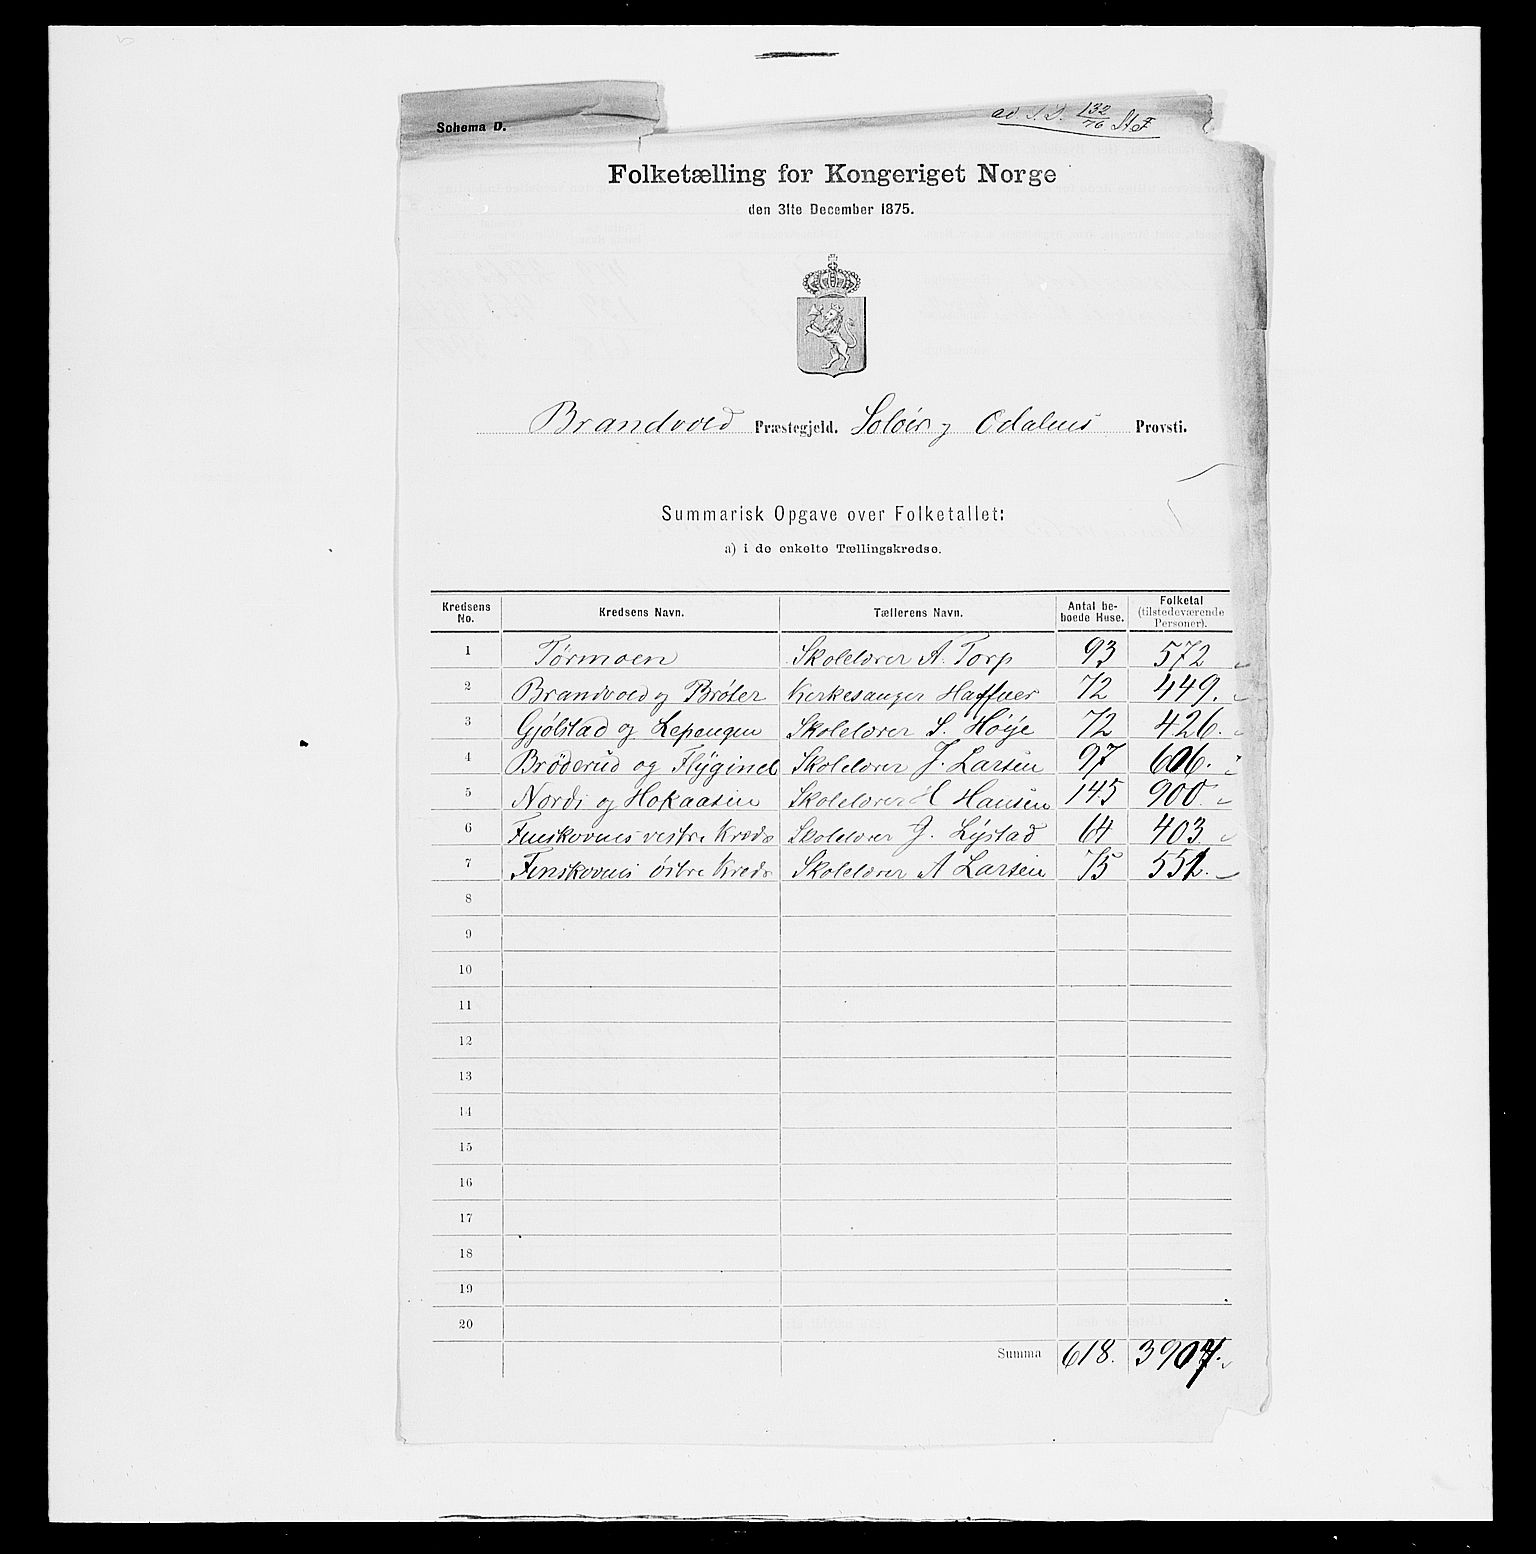 Schema D.
ad S.D. 132/76 StF
Folketælling for Kongeriget Norge
den 31te December 1875.
Brandvold Præstegjeld. Soløer og Odalens Provsti.
Summarisk Opgave over Folketallet:
a) i de enkelte Tællingskredse.
Kredsens No. Kredsens Navn. Tællerens Navn. Antal beboede Huse. Folketal (tilstedeværende Personer).
1 Törmoen Skolelærer A. Torp 93 572
2 Brandvold og Brøter Kerkesanger Haffner 72 449.
3 Gjølstad og Lepengen Skolelærer S. Høije 72 426.
4 Bröderud og Flÿgind Skolelærer J. Larsen 97 606.
5 Nordi og Hokaasen Skolelærer H Hansen 145 900.
6 Finskovens vestre Kreds Skolelærer J. Lÿstad 64 403
7 Finskovens östre Kreds Skolelærer A Larsen 75 551.
8
9
10
11
12
13
14
15
16
17
18
19
20
Summa 618. 3907.